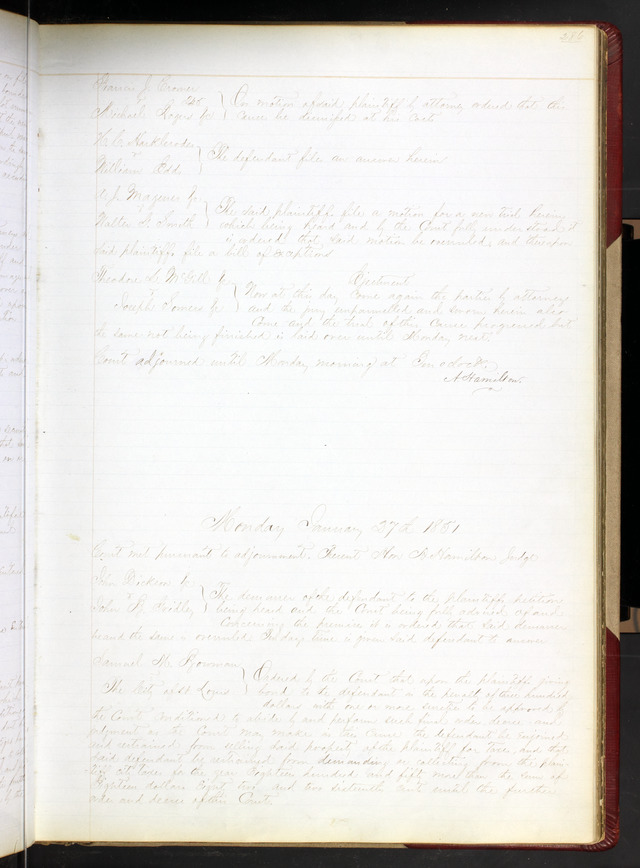 On motion of said plaintiff by attorney ordered that this
Michael Rogers &c } cause be dismissed at his costs
William Edd } The defendant file an answer herein
A. J. Magenes &c
Walter H. Smith } The said plaintiffs file a motion for a new trial herein
which being heard and by the Court fully understood it
is ordered that said motion be overruled, and thereupon
said plaintiffs file a bill of exceptions
Ejectment
Joseph Somers &c } Now at this day come again the parties by attorney
and the jury empannelled and sworn herein also
come and the trial of this cause progressed but
the same not being finished is laid over until Monday next.
Court adjourned until Monday morning at ten o'clock.
A Hamilton.
Monday January 27th 1861
Court met pursuant to adjournment. Present Hon A Hamilton Judge
John Dickson &c
John B. } The demurrer of the defendant to the plaintiffs petition
being heard and the Court being fully advised of and
concerning the premises it is ordered that said demurrer
be and the same is overruled. days time is given said defendant to answer
Samuel M. Bowman
The City of St Louis } Ordered by the Court that upon the plaintiff giving
bond to the defendant in the penalty of three hundred
dollars with one or more sureties to be approved by
the Court conditioned to abide by and perform such final order decree and
judgment as the Court may make in this cause the defendant be enjoined
and restrained from selling said property of the plaintiff for taxes, and that
said defendant be restrained from demanding or collecting from the plain-
tiff at law for the year Eighteen hundred and fifty more than the sum of
Eighteen dollars Eighty two and two sixteenth cents until the further
order and decree of this Court.